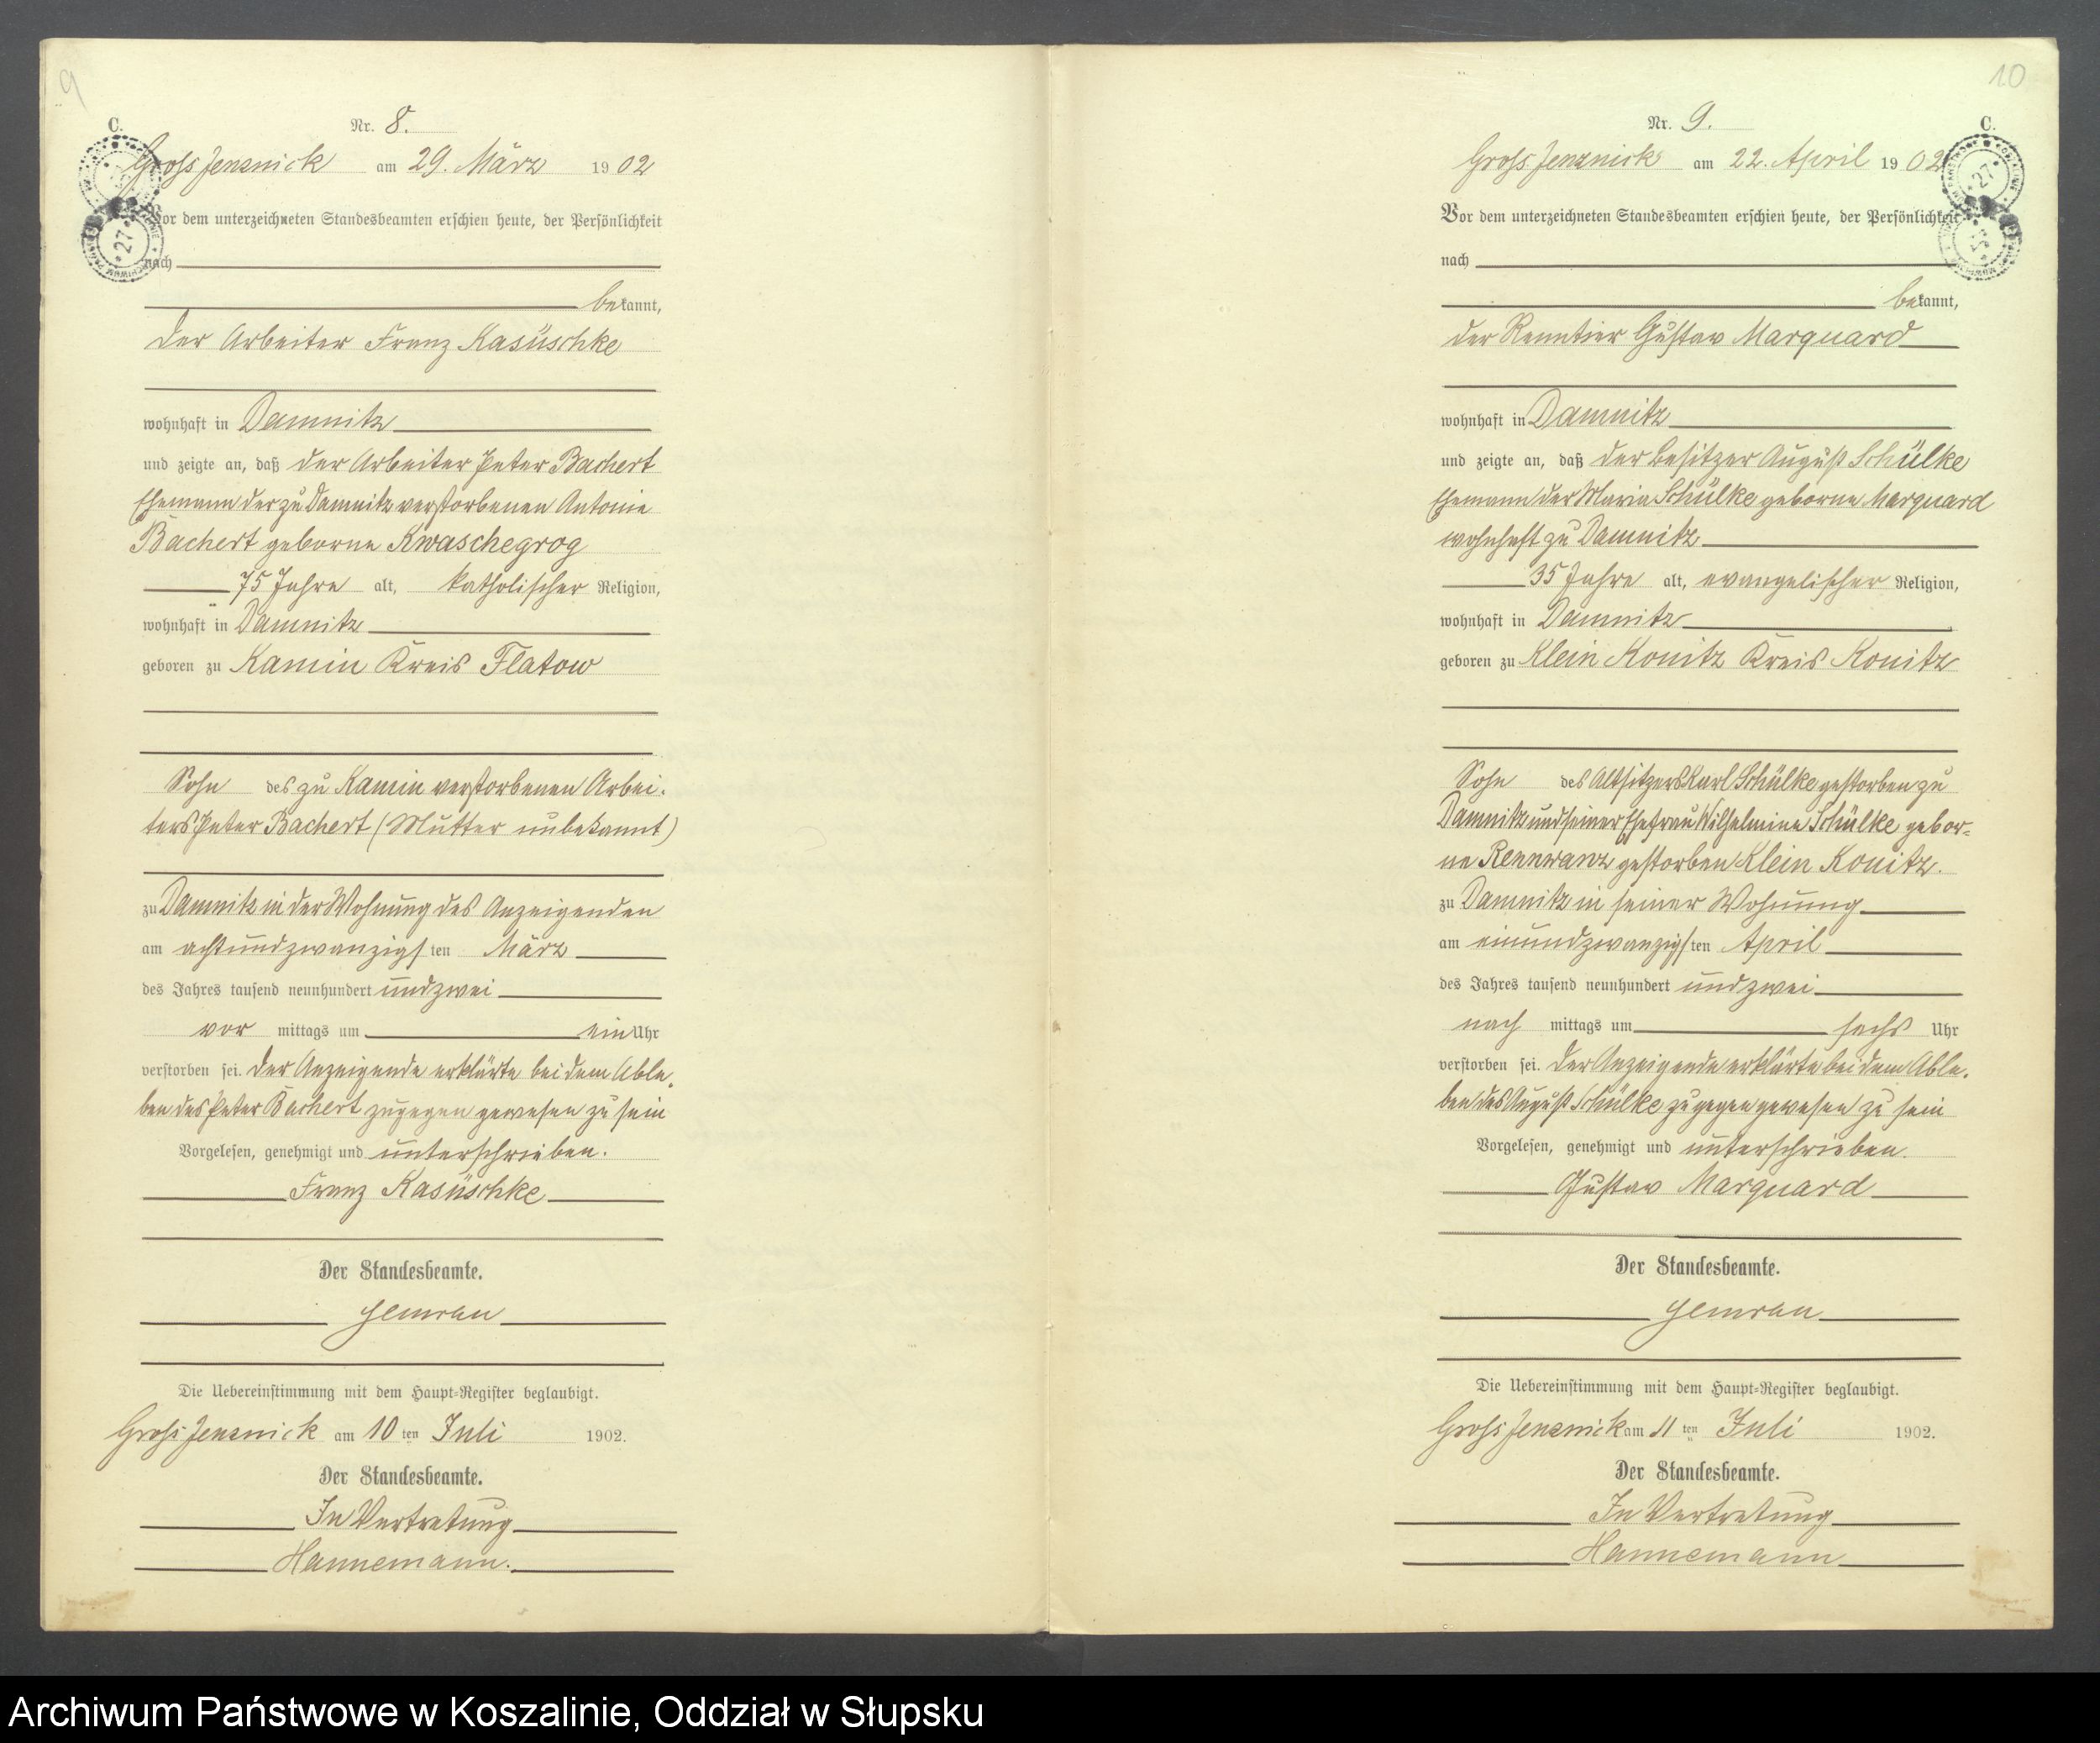 9
C.
Nr. 8.
Gross Jenznick am 29. März 1902
Vor dem unterzeichneten Standesbeamten erschien heute, der Persönlichkeit
nach
bekannt,
der Arbeiter Franz Kasuschke
wohnhaft in Damnitz
und zeigte an, daß der Arbeiter Peter Bachert
Ehemann der zu Damnitz verstorbenen Antonie
Bachert geborne Kwaschegrog
75 Jahre alt, katholischer Religion,
wohnhaft in Damnitz
geboren zu Kamin Kreis Flatow
Sohn des zu Kamin verstorbenen Arbei-
ters Peter Bachert (Mutter unbekannt)
zu Damnitz in der Wohnung des Anzeigenden
am achtundzwanzigsten März
des Jahres tausend neunhundert und zwei
vor mittags um ein Uhr
verstorben sei. Der Anzeigende erklärte bei dem Able-
ben des Peter Bachert zugegen gewesen zu sein
Vorgelesen, genehmigt und unterschrieben.
Franz Kasuschke
Der Standesbeamte.
Gemrau
Die Uebereinstimmung mit dem Haupt-Register beglaubigt.
Gross Jenznick am 10 ten Juli 1902.
Der Standesbeamte.
In Vertretung
Hannemann.
10
C.
Nr. 9.
Gross Jenznick am 22. April 1902
Vor dem unterzeichneten Standesbeamten erschien heute, der Persönlichkeit
nach
bekannt,
der Renntier Gustav Marquard
wohnhaft in Damnitz
und zeigte an, daß der Besitzer August Schülke
Ehemann der Maria Schülke geborne Marquard
wohnhaft zu Damnitz
35 Jahre alt, evangelischer Religion,
wohnhaft in Damnitz
geboren zu Klein Konitz Kreis Konitz
Sohn des Altsitzers Karl Schülke gestorben zu
Damnitz und seiner Ehefrau Wilhelmine Schülke gebor-
ne Rennwanz gestorben Klein Konitz.
zu Damnitz in seiner Wohnung
am einundzwanzigsten April
des Jahres tausend neunhundert und zwei
nach mittags um sechs Uhr
verstorben sei. Der Anzeigende erklärte bei dem Able-
ben des August Schülke zugegen gewesen zu sein
Vorgelesen, genehmigt und unterschrieben.
Gustav Marquard
Der Standesbeamte.
Gemrau
Die Uebereinstimmung mit dem Haupt-Register beglaubigt.
Gross Jenznick am 11 ten Juli 1902.
Der Standesbeamte.
In Vertretung
Hannemann
Archiwum Państwowe w Koszalinie, Oddział w Słupsku